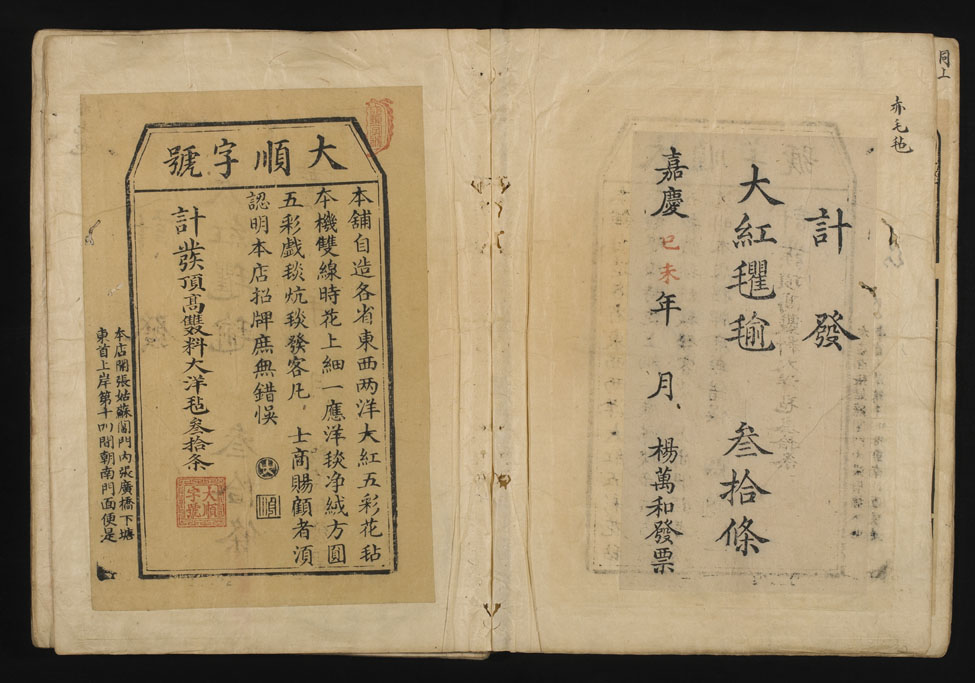 同上
赤毛毡
計發
大紅氍毹 叁拾條
嘉慶己未年 月 楊萬和發票
大順字號
本舖自造各省東西两洋大紅五彩花毡
本機雙線時花上細一應洋毯净絨方圓
五彩戲毯炕毯發客凡 士商賜顧者湏
認明本店招牌庶無錯悞
順
計發頂高雙料大洋毡叁拾条
大順字號
本店開張姑蘇閶門内張廣橋下塘
東首上岸第十間朝南門面便是